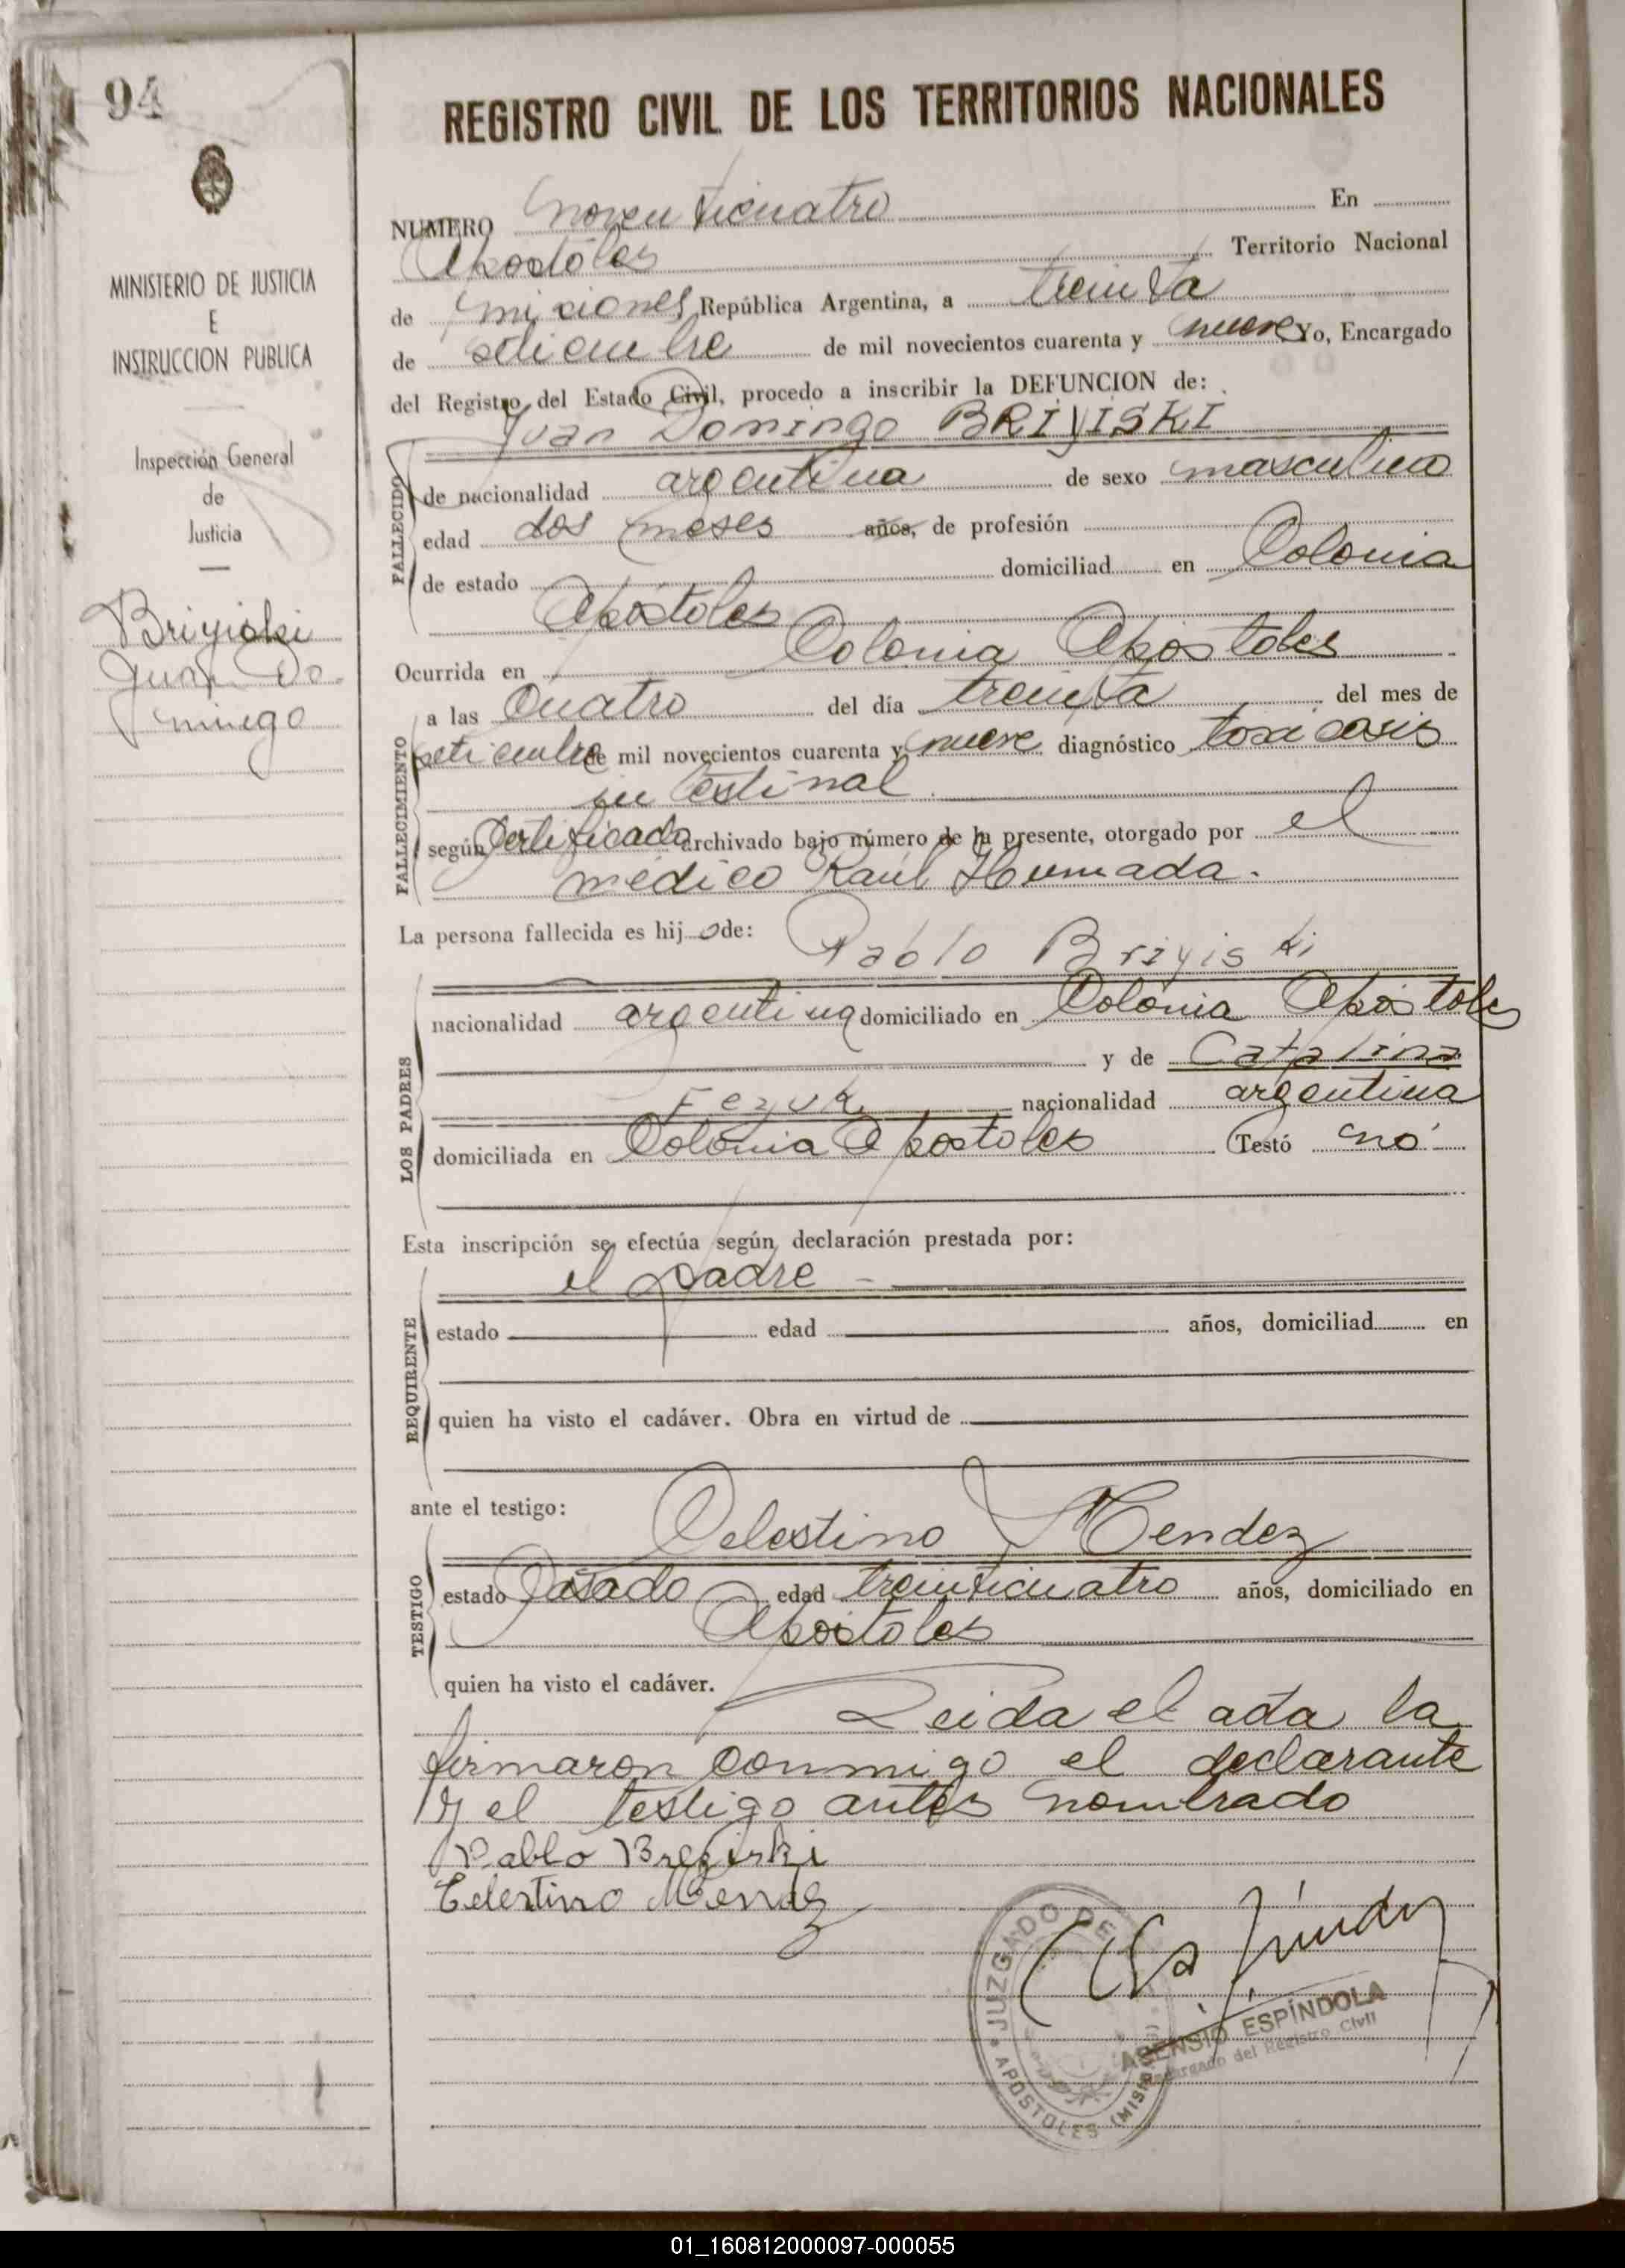 94
MINISTERIO DE JUSTICIA
E
INSTRUCCION PUBLICA
Inspección General
de
Justicia
Briyiski
Juan Do-
mingo
REGISTRO CIVIL DE LOS TERRITORIOS NACIONALES
NUMERO noventicuatro En
Apostoles Territorio Nacional
de Misiones República Argentina, a treinta
de setiembre de mil novecientos cuarenta y nueve Yo, Encargado
del Registro del Estado Civil, procedo a inscribir la DEFUNCION de:
Juan Domingo BRIYISKI
FALLECIDO
de nacionalidad argentina de sexo masculino
edad dos meses años, de profesión
de estado domiciliad en Colonia
Apóstoles
Ocurrida en Colonia Apóstoles
FALLECIMIENTO
a las Cuatro del día treinta del mes de
setiembre de mil novecientos cuarenta y nueve diagnóstico toxicosis
intestinal
según Certificado archivado bajo número de la presente, otorgado por el
médico Raúl Humada.
La persona fallecida es hij o de: Pablo Briyiski
LOS PADRES
nacionalidad argentina domiciliado en Colonia Apóstoles
y de Catalina
Fezuk nacionalidad argentina
domiciliada en Colonia Apostoles Testó no
Esta inscripción se efectúa según declaración prestada por:
el padre -
REQUIRENTE
estado edad años, domiciliad en
quien ha visto el cadáver. Obra en virtud de
ante el testigo: Celestino Mendez
TESTIGO
estado Casado edad treinticuatro años, domiciliado en
Apóstoles
quien ha visto el cadáver.
Leida el acta la
firmaron conmigo el declarante
y el testigo antes nombrado
Pablo
Celestino Mendez
JUZGADO DE
APOSTOLES
ASENSIO ESPÍNDOLA
Encargado del Registro Civil
01_160812000097-000055